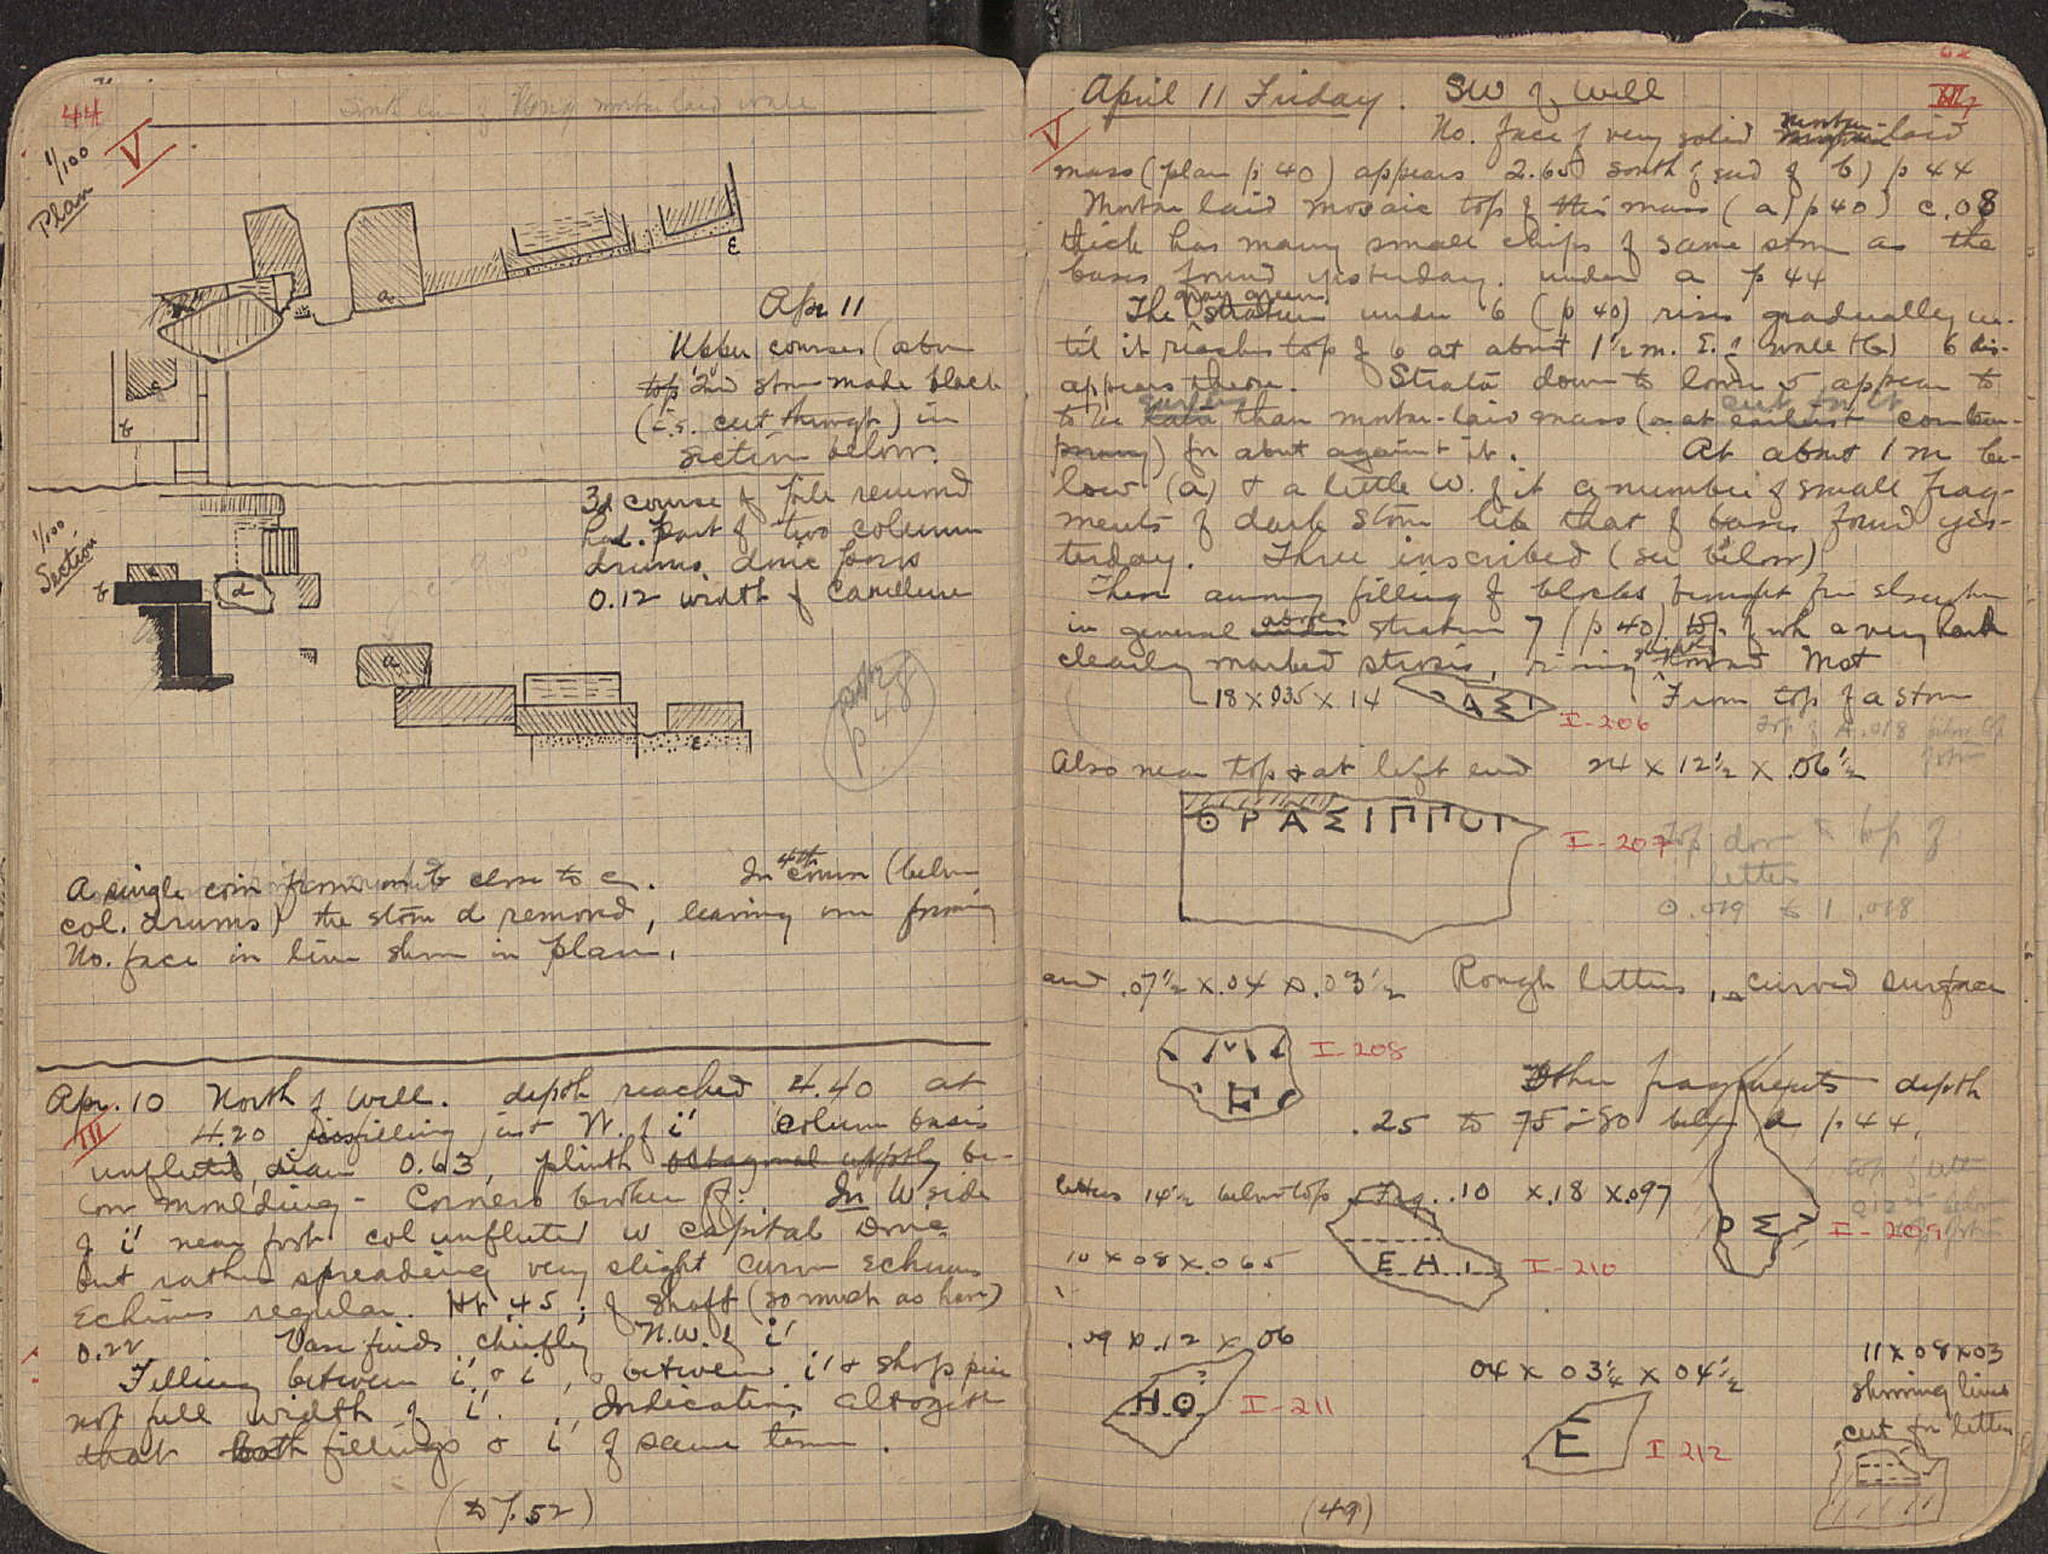 44
V
1/100
Plan
a
ε
Apr 11
Upper courses (above
top 2nd stone made black
(i.e. cut through) in
section below.
1/100
Section
b
d
a
ε
3d course of pile removed
had part of two column
drums, doric poros
0.12 width of cannelure
p. 48
A single coin from close to c. In 4th course (below
col. drums) the stone d removed, leaving one forming
No. face in line shown in plan.
Apr. 10 North of Well. depth reached 4.40 at
III
4.20 filling just W. of i' Column basis
unfluted, diam 0.63, plinth octagonal appthly be-
low moulding - Corners broken off. In W. side
of i' near foot col unfluted w capital Doric
but rather spreading very slight curve echinus
Echinus regular. Ht .45; of shaft (so much as here)
0.22 Vase finds chiefly N.W. of i'
Filling between i' & i, & between i' & shops pier
not full width of i'. Indications altogether
that both fillings & i' of same term.
(to p. 52)
April 11 Friday. SW of Well
V
No. face of very solid mortar-laid
mass (plan p. 40) appears 2.65 south of end of b) p 44
Mortar laid mosaic top of this mass (a) p 40) c .08
thick has many small chips of same stone as the
bases found yesterday under a p 44
The gray green stratum under 6 (p 40) rises gradually un-
til it reaches top of 6 at about 1½ m. E. of wall (6) 6 dis-
appears there. Strata down to lower 5 appear to
to be earlier than mortar-laid mass (or at earliest contem-
porary) for abut against it. At about 1 m be-
low (a) & a little W. of it a number of small frag-
ments of dark stone like that of bases found yes-
terday. Three inscribed (see below)
There among filling of blocks brought from elsewhere
in general above stratum 7 (p 40) top of wh a very hard
clearly marked strosis, rising toward West
18 x .035 x 14
ΑΣΙ
I-206
From top of a stone
Also near top & at left end 24 x 12½ x .06½
ΘΡΑΣΙΠΠΟΙ
I-207
top of
letter
0.019 to 1 .018
and .07½ x .04 x .03½ Rough letters, curved surface
Ε
I-208
Other fragments depth
.25 to 75-80 below a p. 44,
letters 14½ below top Frg. .10 x .18 x .097
ΡΣ
I-209
10 x 08 x .065
ΕΗΙ
I-210
.09 x .12 x 06
ΗΟ
I-211
04 x 03¼ x 04½
Ε
I-212
11 x 08 x 03
showing lines
cut for letters
(49)